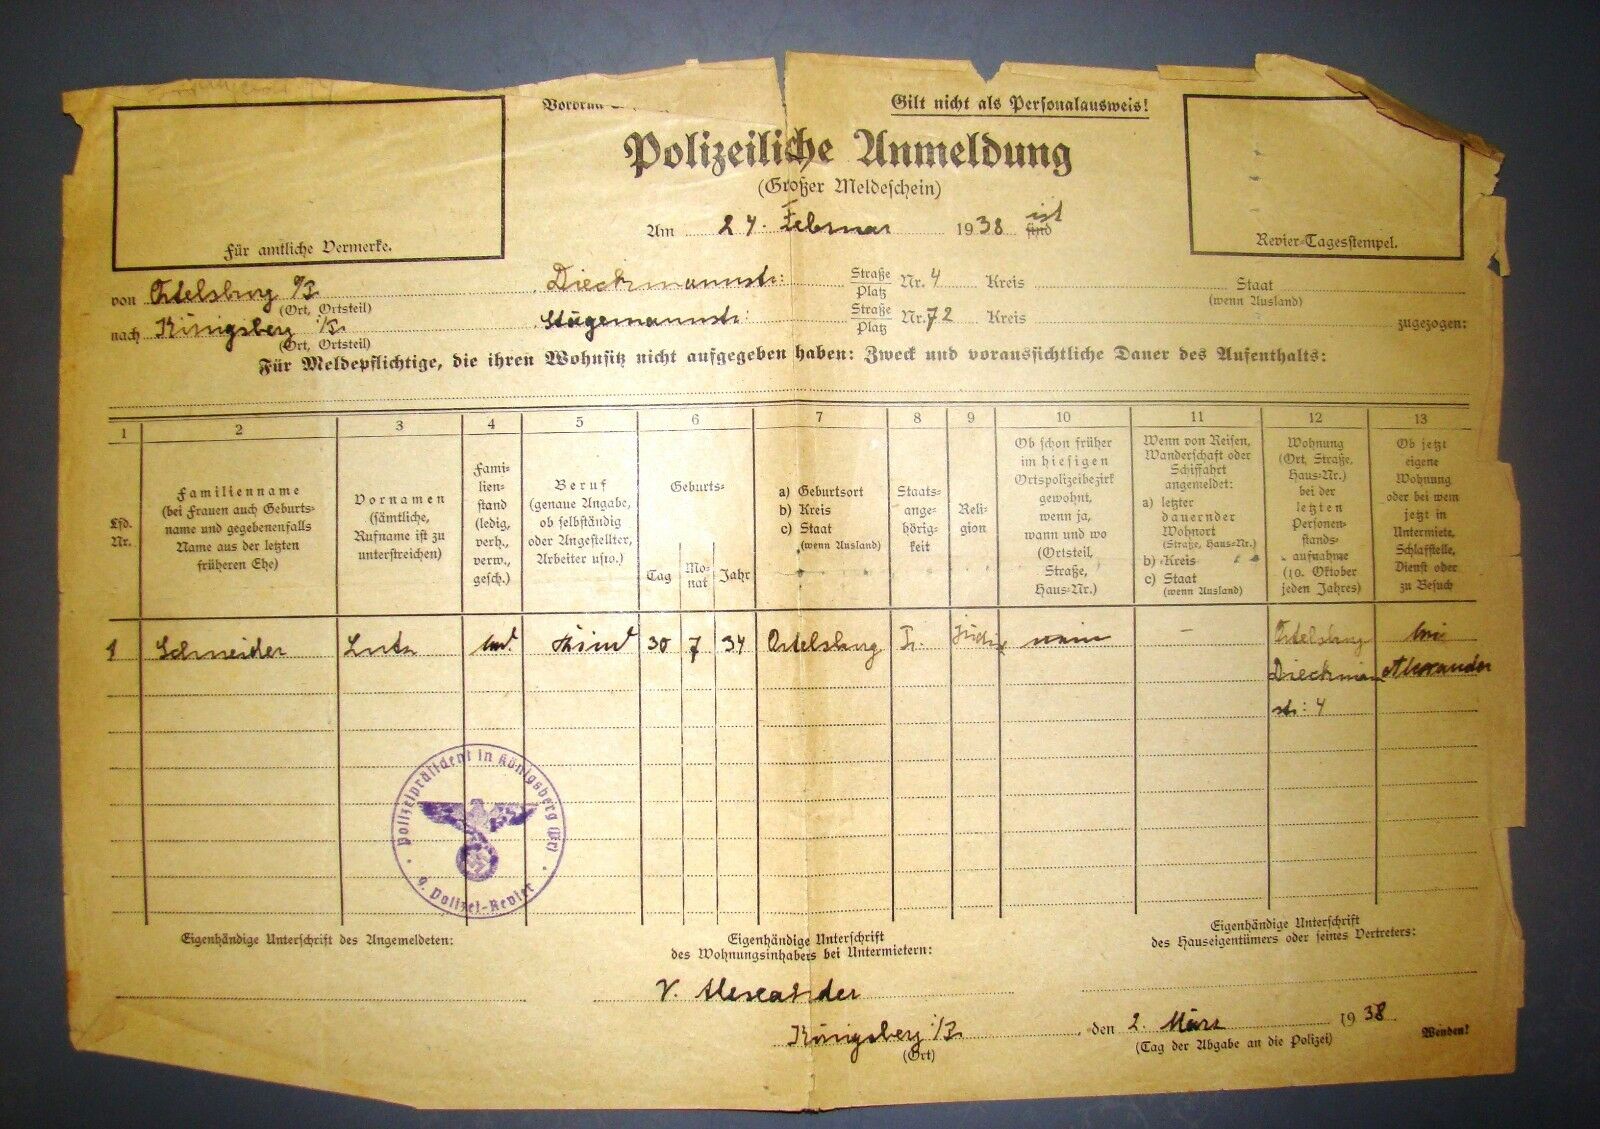 Gilt nicht als Personalausweis!
Polizeiliche Anmeldung
(Großer Meldeschein)
Am 24. Februar 1938 ist sind
Für amtliche Vermerke.
Revier-Tagesstempel.
von Ortelsburg O/P. Dieckmannstr: Straße Platz Nr. 4 Kreis Staat
(Ort, Ortsteil) (wenn Ausland)
nach Königsberg i/Pr. Stägemannstr: Straße Platz Nr. 72 Kreis zugezogen:
(Ort, Ortsteil)
Für Meldepflichtige, die ihren Wohnsitz nicht aufgegeben haben: Zweck und voraussichtliche Dauer des Aufenthalts:
1 2 3 4 5 6 7 8 9 10 11 12 13
Lfd.
Nr.
Familienname
(bei Frauen auch Geburts-
name und gegebenenfalls
Name aus der letzten
früheren Ehe)
Vornamen
(sämtliche,
Rufname ist zu
unterstreichen)
Fami-
lien-
stand
(ledig,
verh.,
verw.,
gesch.)
Beruf
(genaue Angabe,
ob selbständig
oder Angestellter,
Arbeiter usw.)
Geburts-
Tag
Mo-
nat
Jahr
a) Geburtsort
b) Kreis
c) Staat
(wenn Ausland)
Staats-
ange-
hörig-
keit
Reli-
gion
Ob schon früher
im hiesigen
Ortspolizeibezirk
gewohnt,
wenn ja,
wann und wo
(Ortsteil,
Straße,
Haus-Nr.)
Wenn von Reisen,
Wanderschaft oder
Schiffahrt
angemeldet:
a) letzter
dauernder
Wohnort
(Straße, Haus-Nr.)
b) Kreis
c) Staat
(wenn Ausland)
Wohnung
(Ort, Straße,
Haus-Nr.)
bei der
letzten
Personen-
stands-
aufnahme
(10. Oktober
jeden Jahres)
Ob jetzt
eigene
Wohnung
oder bei wem
jetzt in
Untermiete,
Schlafstelle,
Dienst oder
zu Besuch
1 Schneider Lutz Kind 30 7 34 Ortelsburg Pr. nein – Ortelsburg bei
Dieckmann Alexander
str: 4
Polizeipräsident in Königsberg (Pr)
9. Polizei-Revier
Eigenhändige Unterschrift des Angemeldeten:
Eigenhändige Unterschrift
des Wohnungsinhabers bei Untermietern:
Eigenhändige Unterschrift
des Hauseigentümers oder seines Vertreters:
V. Alexander
Königsberg i/Pr. , den 2. März 1938.
(Ort) (Tag der Abgabe an die Polizei)
Wenden!